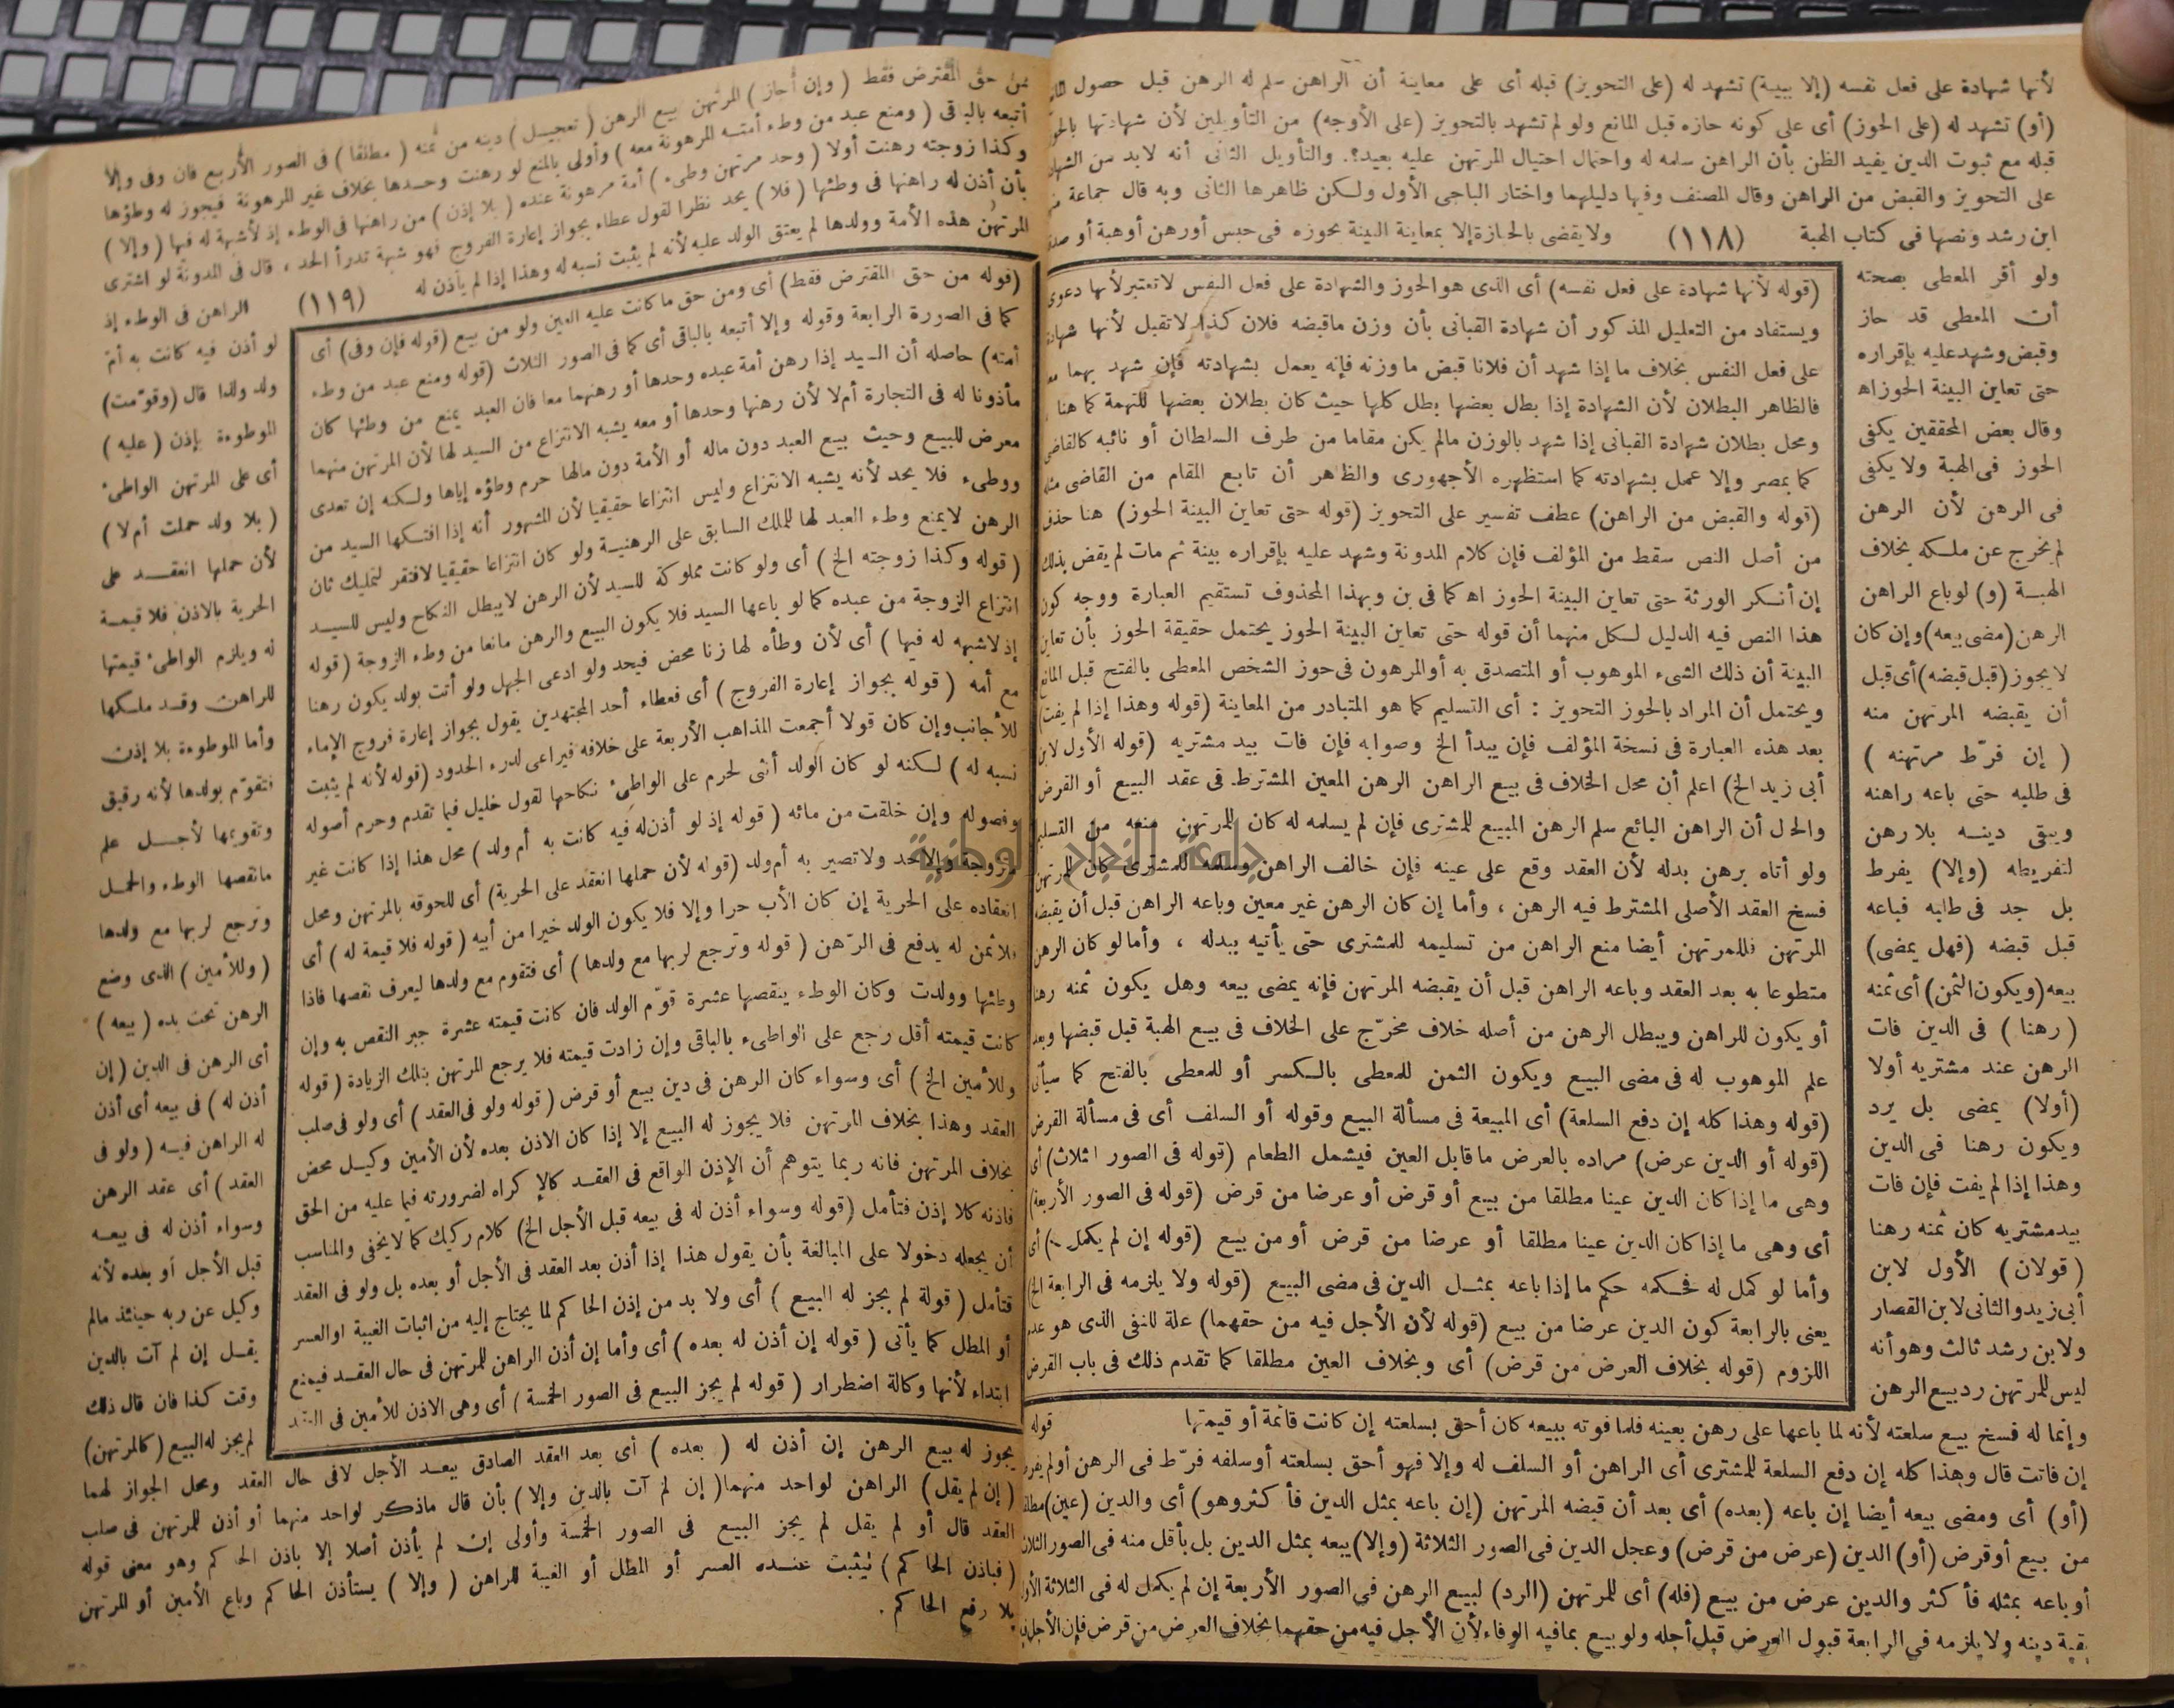 لأنها شهادة على فعل نفسه (إلا ببينة) تشهد له (على التحويز) قبله أى على معاينة أن الراهن سلم له الرهن قبل حصول
(أو) تشهد له (على الحوز) أى على كونه حازه قبل المانع ولو لم تشهد بالتحويز (على الأوجه) من التأويلين لأن شهادتها
قبله مع ثبوت الدين يفيد الظن بأن الراهن سلمه له واحتمال احتيال المرتهن عليه بعيد؟. والتأويل الثانى أنه لابد من
على التحويز والقبض من الراهن وقال المصنف وفيها دليلهما واختار الباجى الأول ولكن ظاهرها الثانى وبه قال جماعة
ابن رشد ونصها فى كتاب الهبة (١١٨) ولا يقضى بالحيازة إلا بمعاينة البينة بحوزه فى حبس أو رهن أو هبة أو
ولو أقر المعطى بصحته
أن المعطى قد حاز
وقبض وشهد عليه بإقراره
حتى تعاين البينة الحوز اه
وقال بعض المحققين يكفى
الحوز فى الهبة ولا يكفى
فى الرهن لأن الرهن
لم يخرج عن ملكه بخلاف
الهبة (و) لو باع الراهن
الرهن (مضى بيعه) وإن كان
لا يجوز (قبل قبضه) أى قبل
أن يقبضه المرتهن منه
( إن فرّط مرتهنه )
فى طلبه حتى باعه راهنه
ويبقى دينه بلا رهن
لتفريطه (وإلا) يفرط
بل جد فى طلبه فباعه
قبل قبضه (فهل يمضى)
بيعه (ويكون الثمن) أى ثمنه
( رهنا ) فى الدين فات
الرهن عند مشتريه أولا
(أولا) يمضى بل يرد
ويكون رهنا فى الدين
وهذا إذا لم يفت فإن فات
بيد مشتريه كان ثمنه رهنا
( قولان ) الأول لابن
أبى زيد والثانى لابن القصار
ولابن رشد ثالث وهو أنه
ليس للمرتهن رد بيع الرهن
وإنما له فسخ بيع سلعته لأنه لما باعها على رهن بعينه فلما فوته ببيعه كان أحق بسلعته إن كانت قائمة أو قيمتها
إن فاتت قال وهذا كله إن دفع السلعة للمشترى أى الراهن أو السلف له وإلا فهو أحق بسلعته أو سلفه فرّط فى الرهن أو لم
(أو) أى ومضى بيعه أيضا إن باعه (بعده) أى بعد أن قبضه المرتهن (إن باعه بمثل الدين فأكثر وهو) أى والدين (عين)
من بيع أو قرض (أو) الدين (عرض من قرض) وعجل الدين فى الصور الثلاثة (وإلا) يبعه بمثل الدين بل بأقل منه فى الصور
أو باعه بمثله فأكثر والدين عرض من بيع (فله) أى للمرتهن (الرد) لبيع الرهن فى الصور الأربعة إن لم يكمل له فى الثلاثة
بقية دينه ولا يلزمه فى الرابعة قبول العرض قبل أجله ولو بيع بما فيه الوفاء لأن الأجل فيه من حقهما بخلاف العرض من قرض فإن الأجل
(قوله لأنها شهادة على فعل نفسه) أى الذى هو الحوز والشهادة على فعل النفس لا تعتبر لأنها دعوى
ويستفاد من التعليل المذكور أن شهادة القبانى بأن وزن ما قبضه فلان كذا لا تقبل لأنها
على فعل النفس بخلاف ما إذا شهد أن فلانا قبض ما وزنه فإنه يعمل بشهادته فإن شهد بهما
فالظاهر البطلان لأن الشهادة إذا بطل بعضها بطل كلها حيث كان بطلان بعضها للتهمة كما هنا
ومحل بطلان شهادة القبانى إذا شهد بالوزن مالم يكن مقاما من طرف السلطان أو نائبه كالقاضى
كما بمصر وإلا عمل بشهادته كما استظهره الأجهورى والظاهر أن تابع المقام من القاضى
(قوله والقبض من الراهن) عطف تفسير على التحويز (قوله حتى تعاين البينة الحوز) هنا حذف
من أصل النص سقط من المؤلف فإن كلام المدونة وشهد عليه بإقراره بينة ثم مات لم يقض بذلك
إن أنكر الورثة حتى تعاين البينة الحوز اه كما فى بن وبهذا المحذوف تستقيم العبارة ووجه كون
هذا النص فيه الدليل لكل منهما أن قوله حتى تعاين البينة الحوز يحتمل حقيقة الحوز بأن تعاين
البينة أن ذلك الشىء الموهوب أو المتصدق به أو المرهون فى حوز الشخص المعطى بالفتح قبل المانع
ويحتمل أن المراد بالحوز التحويز : أى التسليم كما هو المتبادر من المعاينة (قوله وهذا إذا لم يفت)
بعد هذه العبارة فى نسخة المؤلف فإن يبدأ الخ وصوابه فإن فات بيد مشتريه (قوله الأول لابن
أبى زيد الخ) اعلم أن محل الخلاف فى بيع الراهن الرهن المعين المشترط فى عقد البيع أو القرض
والحال أن الراهن البائع سلم الرهن المبيع للمشترى فإن لم يسلمه له كان للمرتهن منعه من التسليم
ولو أتاه برهن بدله لأن العقد وقع على عينه فإن خالف الراهن وسلمه للمشترى كان للمرتهن
فسخ العقد الأصلى المشترط فيه الرهن ، وأما إن كان الرهن غير معين وباعه الراهن قبل أن يقبضه
المرتهن فللمرتهن أيضا منع الراهن من تسليمه للمشترى حتى يأتيه ببدله ، وأما لو كان الرهن
متطوعا به بعد العقد وباعه الراهن قبل أن يقبضه المرتهن فإنه يمضى بيعه وهل يكون ثمنه رهنا
أو يكون للراهن ويبطل الرهن من أصله خلاف مخرّج على الخلاف فى بيع الهبة قبل قبضها وبعد
علم الموهوب له فى مضى البيع ويكون الثمن للمعطى بالكسر أو للمعطى بالفتح كما سيأتى
(قوله وهذا كله إن دفع السلعة) أى المبيعة فى مسألة البيع وقوله أو السلف أى فى مسألة القرض
(قوله أو الدين عرض) مراده بالعرض ما قابل العين فيشمل الطعام (قوله فى الصور الثلاث) أى
وهى ما إذا كان الدين عينا مطلقا من بيع أو قرض أو عرضا من قرض (قوله فى الصور الأربعة)
أى وهى ما إذا كان الدين عينا مطلقا أو عرضا من قرض أو من بيع (قوله إن لم يكمل) أى
وأما لو كمل له فحكمه حكم ما إذا باعه بمثل الدين فى مضى البيع (قوله ولا يلزمه فى الرابعة الخ)
يعنى بالرابعة كون الدين عرضا من بيع (قوله لأن الأجل فيه من حقهما) علة للنفى الذى هو عدم
اللزوم (قوله بخلاف العرض من قرض) أى وبخلاف العين مطلقا كما تقدم ذلك فى باب القرض
قوله
جامعة النجاح الوطنية
من حق المقترض فقط ( وإن أجاز ) المرتهن بيع الرهن ( تعجيل ) دينه من ثمنه ( مطلقا ) فى الصور الأربع فان وفى وإلا
أتبعه بالباقى ( ومنع عبد من وطء أمته المرهونة معه ) وأولى بالمنع لو رهنت وحدها بخلاف غير المرهونة فيجوز له وطؤها
وكذا زوجته رهنت أولا ( وحد مرتهن وطىء ) أمة مرهونة عنده ( بلا إذن ) من راهنها فى الوطء إذ لا شبهة له فيها ( وإلا )
بأن أذن له راهنها فى وطئها ( فلا ) يحد نظرا لقول عطاء بجواز إعارة الفروج فهو شبهة تدرأ الحد ، قال فى المدونة لو اشترى
المرتهن هذه الأمة وولدها لم يعتق الولد عليه لأنه لم يثبت نسبه له وهذا إذا لم يأذن له (١١٩) الراهن فى الوطء إذ
لو أذن فيه كانت به أم
ولد ولذا قال (وقوّمت)
الموطوءة بإذن ( عليه )
أى على المرتهن الواطىء
( بلا ولد حملت أم لا )
لأن حملها انعقد على
الحرية بالاذن فلا قيمة
له ويلزم الواطىء قيمتها
للراهن وقد ملكها
وأما الموطوءة بلا إذن
فتقوّم بولدها لأنه رقيق
وتقويمها لأجل علم
ما نقصها الوطء والحمل
وترجع لربها مع ولدها
( وللأمين ) الذى وضع
الرهن تحت يده ( بيعه )
أى الرهن فى الدين ( إن
أذن له ) فى بيعه أى أذن
له الراهن فيه ( ولو فى
العقد ) أى عقد الرهن
وسواء أذن له فى بيعه
قبل الأجل أو بعده لأنه
وكيل عن ربه حينئذ مالم
يقل إن لم آت بالدين
وقت كذا فان قال ذلك
لم يجز له البيع (كالمرتهن)
يجوز له بيع الرهن إن أذن له ( بعده ) أى بعد العقد الصادق ببعد الأجل لا فى حال العقد ومحل الجواز لهما
( إن لم يقل ) الراهن لواحد منهما ( إن لم آت بالدين وإلا ) بأن قال ما ذكر لواحد منهما أو أذن للمرتهن فى صلب
العقد قال أو لم يقل لم يجز البيع فى الصور الخمسة وأولى إن لم يأذن أصلا إلا باذن الحاكم وهو معنى قوله
( فباذن الحاكم ) ليثبت عنده العسر أو المطل أو الغيبة للراهن ( وإلا ) يستأذن الحاكم وباع الأمين أو المرتهن
بلا رفع الحاكم .
(قوله من حق المقترض فقط) أى ومن حق ما كانت عليه العين ولو من بيع (قوله فإن وفى) أى
كما فى الصورة الرابعة وقوله وإلا أتبعه بالباقى أى كما فى الصور الثلاث (قوله ومنع عبد من وطء
أمته) حاصله أن السيد إذا رهن أمة عبده وحدها أو رهنهما معا فان العبد يمنع من وطئها كان
مأذونا له فى التجارة أم لا لأن رهنها وحدها أو معه يشبه الانتزاع من السيد لها لأن المرتهن منهما
معرض للبيع وحيث بيع العبد دون ماله أو الأمة دون مالها حرم وطؤه إياها ولكنه إن تعدى
ووطىء فلا يحد لأنه يشبه الانتزاع وليس انتزاعا حقيقيا لأن المشهور أنه إذا افتكها السيد من
الرهن لا يمنع وطء العبد لها للملك السابق على الرهنية ولو كان انتزاعا حقيقيا لافتقر لتمليك ثان
( قوله وكذا زوجته الخ ) أى ولو كانت مملوكة للسيد لأن الرهن لا يبطل النكاح وليس للسيد
انتزاع الزوجة من عبده كما لو باعها السيد فلا يكون البيع والرهن مانعا من وطء الزوجة ( قوله
إذ لا شبهه له فيها ) أى لأن وطأه لها زنا محض فيحد ولو ادعى الجهل ولو أتت بولد يكون رهنا
مع أمه ( قوله بجواز إعارة الفروج ) أى فعطاء أحد المجتهدين يقول بجواز إعارة فروج الإماء
للأجانب وإن كان قولا أجمعت المذاهب الأربعة على خلافه فيراعى لدرء الحدود (قوله لأنه لم يثبت
نسبه له ) لكنه لو كان الولد أنثى لحرم على الواطىء نكاحها لقول خليل فيما تقدم وحرم أصوله
وفصوله وإن خلقت من مائه ( قوله إذ لو أذن له فيه كانت به أم ولد ) محل هذا إذا كانت غير
متزوجة وإلا حد ولا تصير به أم ولد (قوله لأن حملها انعقد على الحرية) أى للحوقه بالمرتهن ومحل
انعقاده على الحرية إن كان الأب حرا وإلا فلا يكون الولد خيرا من أبيه ( قوله فلا قيمة له ) أى
فلا ثمن له يدفع فى الرّهن ( قوله وترجع لربها مع ولدها ) أى فتقوم مع ولدها ليعرف نقصها فاذا
وطئها وولدت وكان الوطء ينقصها عشرة قوّم الولد فان كانت قيمته عشرة جبر النقص به وإن
كانت قيمته أقل رجع على الواطىء بالباقى وإن زادت قيمته فلا يرجع المرتهن بتلك الزيادة ( قوله
وللأمين الخ ) أى وسواء كان الرهن فى دين بيع أو قرض ( قوله ولو فى العقد ) أى ولو فى صلب
العقد وهذا بخلاف المرتهن فلا يجوز له البيع إلا إذا كان الاذن بعده لأن الأمين وكيل محض
بخلاف المرتهن فانه ربما يتوهم أن الإذن الواقع فى العقد كالإكراه لضرورته فيما عليه من الحق
فاذنه كلا إذن فتأمل (قوله وسواء أذن له فى بيعه قبل الأجل الخ) كلام ركيك كما لا يخفى والمناسب
أن يجعله دخولا على المبالغة بأن يقول هذا إذا أذن بعد العقد فى الأجل أو بعده بل ولو فى العقد
فتأمل ( قوله لم يجز له البيع ) أى ولا بد من إذن الحاكم لما يحتاج إليه من اثبات الغيبة او العسر
أو المطل كما يأتى ( قوله إن أذن له بعده ) أى وأما إن أذن الراهن للمرتهن فى حال العقد فيمنع
ابتداء لأنها وكالة اضطرار ( قوله لم يجز البيع فى الصور الخمسة ) أى وهى الاذن للأمين فى